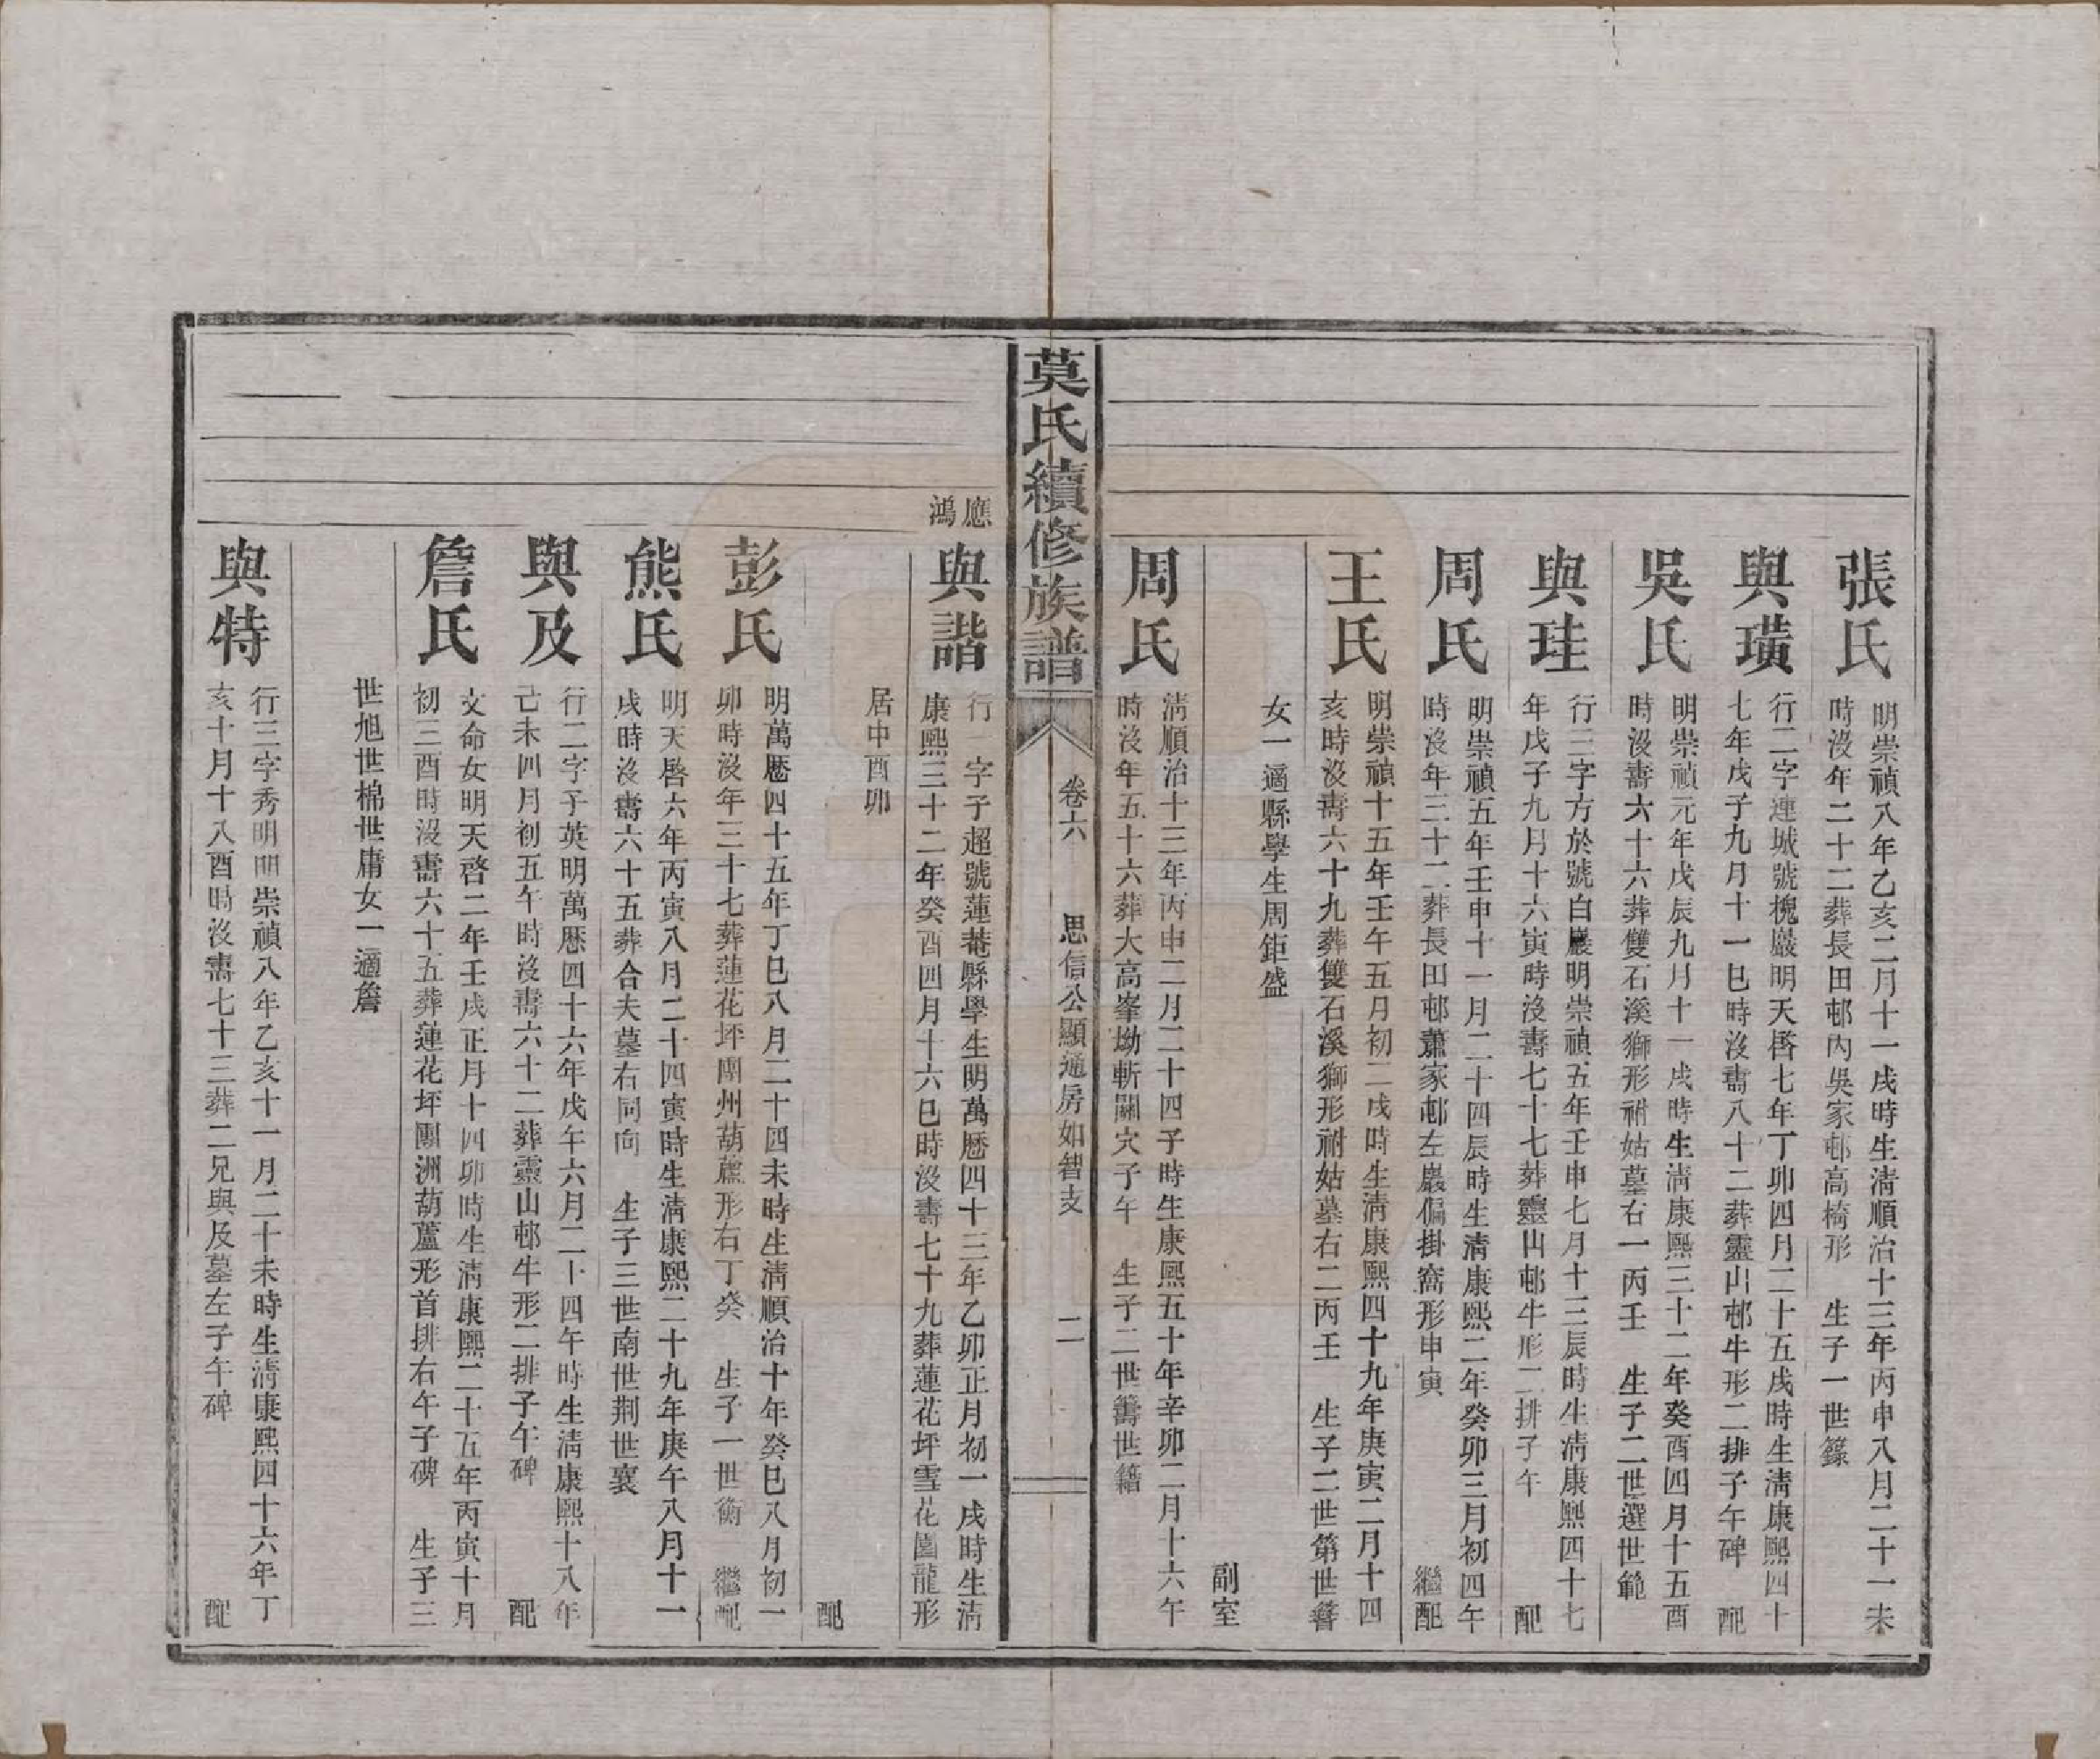 張氏
明崇禎八年乙亥二月十一戌時生淸順治十三年丙申八月二十一未
時沒年二十二葬長田邨內吳家邨高椅形　生子一世籙
與璜
行二字連城號槐巖明天啓七年丁卯四月二十五戌時生淸康熙四十
七年戊子九月十一巳時沒壽八十二葬靈山邨牛形二排子午碑　配
吳氏
明崇禎元年戊辰九月十一戌時生淸康熙三十二年癸酉四月十五酉
時沒壽六十六葬雙石溪獅形祔姑墓右一丙壬　生子二世選世範
與珪
行三字方於號白巖明崇禎五年壬申七月十三辰時生淸康熙四十七
年戊子九月十六寅時沒壽七十七葬靈山邨牛形二排子午　配
周氏
明崇禎五年壬申十一月二十四辰時生淸康熙二年癸卯三月初四午
時沒年三十二葬長田邨蕭家邨左巖偏掛窩形申寅　繼配
王氏
明崇禎十五年壬午五月初二戌時生淸康熙四十九年庚寅二月十四
亥時沒壽六十九葬雙石溪獅形祔姑墓右二丙壬　生子二世第世簪
女一適縣學生周鉅盛
副室
周氏
淸順治十三年丙申二月二十四子時生康熙五十年辛卯二月十六午
時沒年五十六葬大高峯坳斬關穴子午　生子二世籌世籍
莫氏續修族譜
卷六　思信公顯通房如智支　二
應鴻
與諧
行一字子超號蓮菴縣學生明萬曆四十三年乙卯正月初一戌時生淸
康熙三十二年癸酉四月十六巳時沒壽七十九葬蓮花坪雪花園龍形
居中酉卯
配
彭氏
明萬曆四十五年丁巳八月二十四未時生淸順治十年癸巳八月初一
卯時沒年三十七葬蓮花坪團州葫蘆形右丁癸　生子一世衡　繼配
熊氏
明天啓六年丙寅八月二十四寅時生淸康熙二十九年庚午八月十一
戌時沒壽六十五葬合夫墓右同向　生子三世南世荆世襄
與及
行二字子英明萬曆四十六年戊午六月二十四午時生淸康熙十八年
己未四月初五午時沒壽六十二葬靈山邨牛形二排子午碑　配
詹氏
文命女明天啓二年壬戌正月十四卯時生淸康熙二十五年丙寅十月
初三酉時沒壽六十五葬蓮花坪團洲葫蘆形首排右午子碑　生子三
世旭世棉世庸女一適詹
與特
行三字秀明明崇禎八年乙亥十一月二十未時生淸康熙四十六年丁
亥十月十八酉時沒壽七十三葬二兄與及墓左子午碑　配